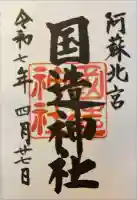 阿蘇北宮
国造神社
令和七年 四月廿七日
國造
神社